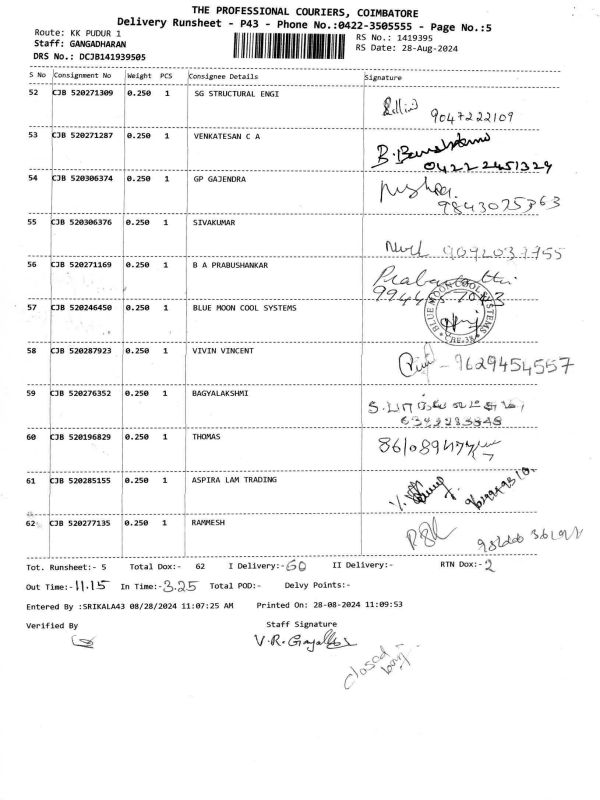 THE PROFESSIONAL COURIERS, COIMBATORE
Delivery Runsheet - P43 - Phone No.:0422-3505555 - Page No.:5
Route: KK PUDUR 1
RS No.: 1419395
Staff: GANGADHARAN
RS Date: 28-Aug-2024
DRS No.: DCJB141939505
S No Consignment No Weight PCS Consignee Details Signature
52 CJB 520271309 0.250 1 SG STRUCTURAL ENGI
9047222109
53 CJB 520271287 0.250 1 VENKATESAN C A
04222451329
54 CJB 520306374 0.250 1 GP GAJENDRA
55 CJB 520306376 0.250 1 SIVAKUMAR
56 CJB 520271169 0.250 1 B A PRABUSHANKAR
57 CJB 520246450 0.250 1 BLUE MOON COOL SYSTEMS
BLUE MOON COOL SYSTEMS
58 CJB 520287923 0.250 1 VIVIN VINCENT
- 9629454557
59 CJB 520276352 0.250 1 BAGYALAKSHMI
60 CJB 520196829 0.250 1 THOMAS
61 CJB 520285155 0.250 1 ASPIRA LAM TRADING
62 CJB 520277135 0.250 1 RAMMESH
Tot. Runsheet:- 5 Total Dox:- 62 I Delivery:- 60 II Delivery:- RTN Dox:- 2
Out Time:- 11.15 In Time:- 3.25 Total POD:- Delvy Points:-
Entered By :SRIKALA43 08/28/2024 11:07:25 AM Printed On: 28-08-2024 11:09:53
Verified By Staff Signature
closed